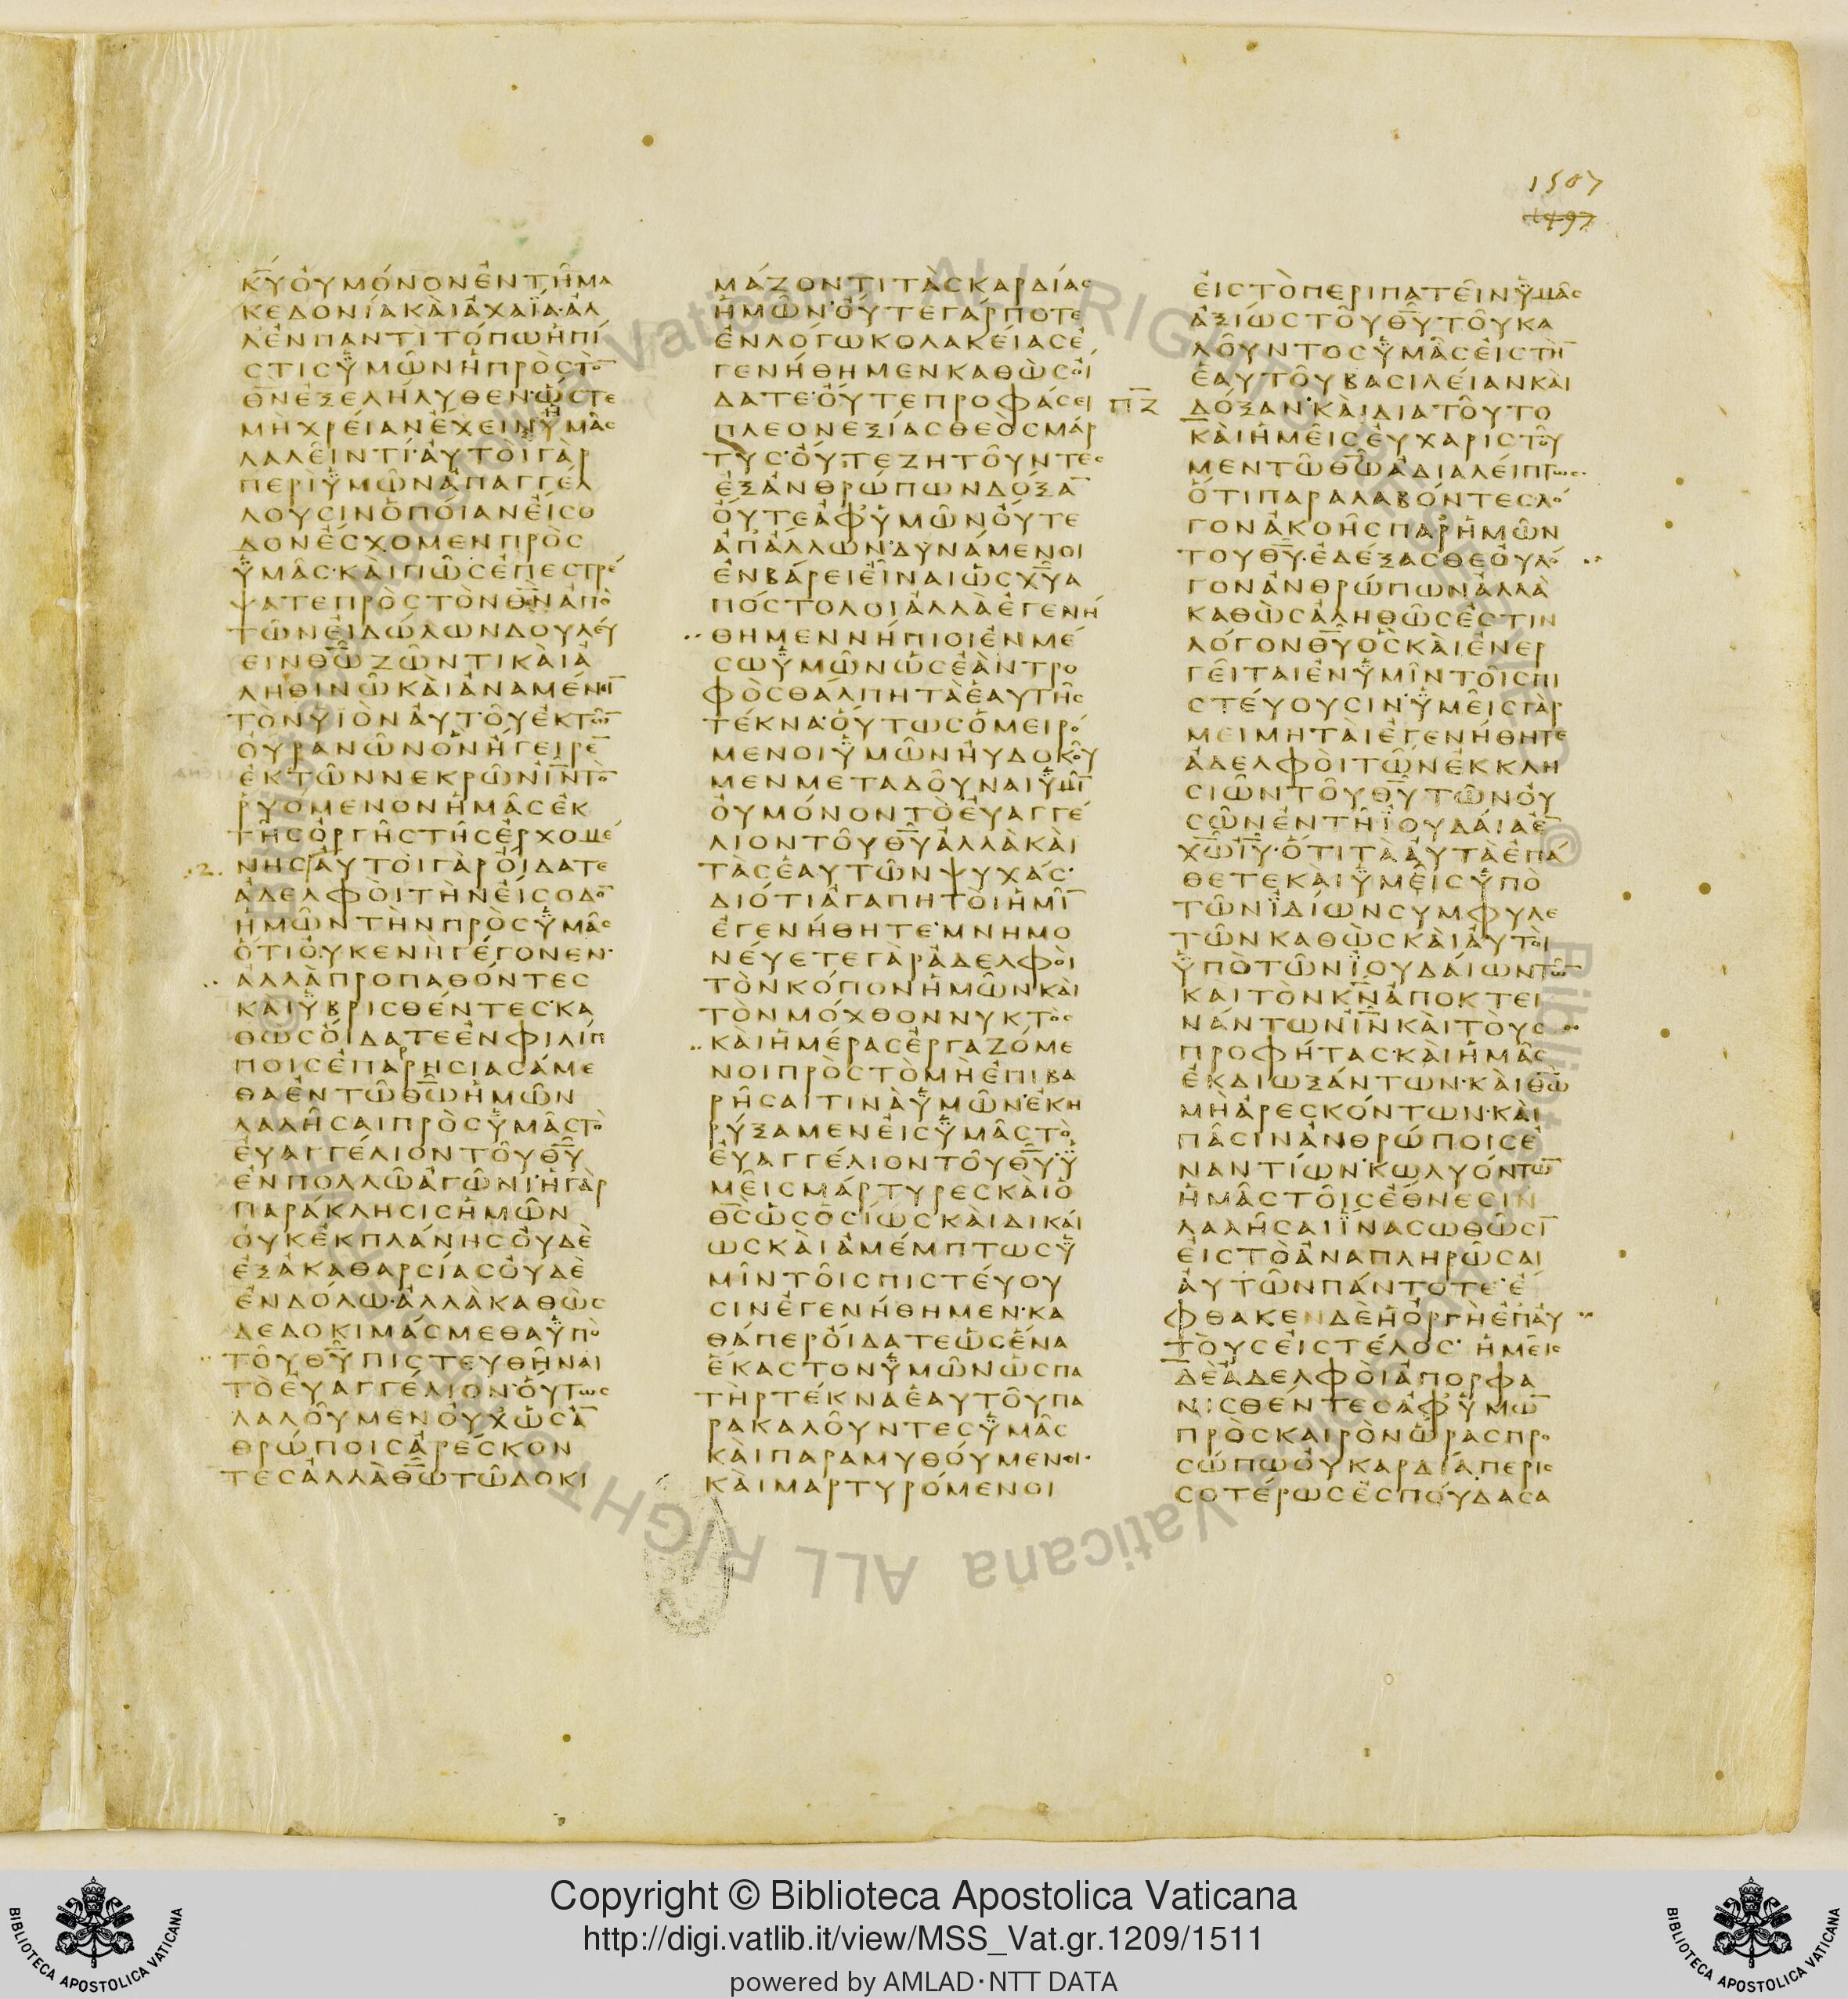 1507
1497
κ̅υ̅ ὀυ μόνον ἐν τῆ μα
κεδονία κὰι ἀχαΐα· ἀλ
λ ἐν παντὶ τόπω ἡ πί
στις ὑμῶν ἡ πρὸς τὸ̅
θ̅ν̅ ἐξελήλυθεν· ὥστε
μὴ χρείαν ἔχειν ἡμᾶς
λαλεῖν τί· ἀυτὸι γὰρ
περὶ ὑμῶν ἀπαγγέλ
λουσιν ὁπόιαν ἔισο
δον ἔσχομεν πρὸς
ὑμᾶς· κὰι πῶς ἐπεστρέ
ψατε πρὸς τὸν θ̅ν̅ ἀπὸ
τῶν ἐιδώλων δουλέυ
ειν θ̅ω̅ ζῶντι κὰι ἀ
ληθινῶ κὰι ἀναμένει̅
τὸν υἱὸν ἀυτοῦ ἐκ τῶ̅
ὀυρανῶν ὃν ἤγειρε̅
ἐκ τῶν νεκρῶν ι̅ν̅ τὸ̅
ῥυόμενον ἡμᾶς ἐκ
τῆς ὀργῆς τῆς ἐρχομέ
νης ἀυτὸι γὰρ ὄιδατε
ἀδελφὸι τὴν ἔισοδο̅
ἡμῶν τὴν πρὸς ὑμᾶς
ὅτι ὀυ κενὴ γέγονεν·
ἀλλὰ προπαθόντες
κὰι ὑβρισθέντες· κα
θὼς ὄιδατε ἐν φιλίπ
ποις ἐπαρρησιασάμε
θα ἐν τῶ θ̅ω̅ ἡμῶν
λαλῆσαι πρὸς ὑμᾶς τὸ
ἐυαγγέλιον τοῦ θ̅υ̅
ἐν πολλῶ ἀγῶνι· ἡ γὰρ
παράκλησις ἡμῶν
ὀυκ ἐκ πλάνης ὀυδὲ
ἐξ ἀκαθαρσίας ὀυδὲ
ἐν δόλω· ἀλλὰ καθὼς
δεδοκιμάσμεθα ὑπὸ
τοῦ θ̅υ̅ πιστευθῆναι
τὸ ἐυαγγέλιον· ὅυτως
λαλοῦμεν ὀυχ ὡς ἀ̅
θρώποις ἀρέσκον
τες ἀλλὰ θ̅ω̅ τῶ δοκι
μάζοντι τὰς καρδίας
ἡμῶν· ὄυτε γάρ ποτε
ἐν λόγω κολακείας ἐ
γενήθημεν καθὼς ὄι
δατε· ὄυτε προφάσει
πλεονεξίας θεὸς μάρ
τυς· ὄυτε ζητοῦντες
ἐξ ἀνθρώπων δόξα̅
ὄυτε ἀφ ὑμῶν ὄυτε
ἀπ ἄλλων· δυνάμενοι
ἐν βάρει εἶναι ὡς χ̅υ̅ ἀ
πόστολοι ἀλλὰ ἐγενή
θημεν νήπιοι ἐν μέ
σω ὑμῶν ὡς ἐὰν τρο
φὸς θάλπη τὰ ἑαυτῆς
τέκνα· ὅυτως ὁμειρό
μενοι ὑμῶν ηὐδοκοῦ
μεν μεταδοῦναι ὑμῖ̅
ὀυ μόνον τὸ ἐυαγγέ
λιον τοῦ θ̅υ̅ ἀλλὰ κὰι
τὰς ἑαυτῶν ψυχάς·
διότι ἀγαπητὸι ἡμῖ̅
ἐγενήθητε· μνημο
νέυετε γὰρ ἀδελφὸι
τὸν κόπον ἡμῶν κὰι
τὸν μόχθον νυκτὸς
κὰι ἡμέρας ἐργαζόμε
νοι πρὸς τὸ μὴ ἐπιβα
ρῆσαι τινὰ ὑμῶν· ἐκη
ρύξαμεν ἐις ὑμᾶς τὸ
ἐυαγγέλιον τοῦ θ̅υ̅· ὑ
μεῖς μάρτυρες κὰι ὁ
θ̅ς̅ ὡς ὁσίως κὰι δικάι
ως κὰι ἀμέμπτως ὑ
μῖν τοῖς πιστέυου
σιν ἐγενήθημεν· κα
θάπερ ὄιδατε ὡς ἕνα
ἕκαστον ὑμῶν ὡς πα
τὴρ τέκνα ἑαυτοῦ πα
ρακαλοῦντες ὑμᾶς
κὰι παραμυθούμενοι·
κὰι μαρτυρόμενοι
ἐις τὸ περιπατεῖν ὑμᾶς
ἀξίως τοῦ θ̅υ̅ τοῦ κα
λοῦντος ὑμᾶς ἐις τὴ̅
ἑαυτοῦ βασιλείαν κὰι
π̅ζ̅ δόξαν· κὰι διὰ τοῦτο
κὰι ἡμεῖς ἐυχαριστοῦ
μεν τῶ θ̅ω̅ ἀδιαλέιπτως·
ὅτι παραλαβόντες λό
γον ἀκοῆς παρ ἡμῶν
του θ̅υ̅· ἐδέξασθε ὀυ λό
γον ἀνθρώπων ἀλλὰ
καθὼς ἀληθῶς ἐστιν
λόγον θ̅υ̅ ὃς κὰι ἐνερ
γεῖται ἐν ὑμῖν τοῖς πι
στέυουσιν· ὑμεῖς γὰρ
μειμητὰι ἐγενήθητε
ἀδελφὸι τῶν ἐκκλη
σιῶν τοῦ θ̅υ̅ τῶν ὀυ
σῶν ἐν τῆ ἰουδάια ἐ̅
χ̅ω̅ ι̅υ̅· ὅτι τὰ ἀυτὰ ἐπά
θετε κὰι ὑμεῖς ὑπὸ
τῶν ἰδίων συμφυλε
τῶν καθὼς κὰι ἀυτὸι
ὑπὸ τῶν ἰουδάιων τῶ̅
και τὸν κ̅ν̅ ἀποκτει
νάντων ι̅ν̅ κὰι τὸυς
προφήτας· κὰι ἡμᾶς
ἐκδιωξάντων· κὰι θ̅ω̅
μὴ ἀρεσκόντων· κὰι
πᾶσιν ἀνθρώποις ἐ
ναντίων· κωλυόντω̅
ἡμᾶς τοῖς ἔθνεσιν
λαλῆσαι ἵνα σωθῶσι̅
ἐις τὸ ἀναπληρῶσαι
ἀυτῶν πάντοτε· ἔ
φθακεν δὲ ἡ ὀργὴ ἐπ ἀυ
τὸυς ἐις τέλος· ἡμεῖς
δὲ ἀδελφὸι ἀπορφα
νισθέντες ἀφ ὑμῶ̅
πρὸς καιρὸν ὥρας προ
σώπω ὀυ καρδία περισ
σοτέρως ἐσπούδασα
Copyright © Biblioteca Apostolica Vaticana
http://digi.vatlib.it/view/MSS_Vat.gr.1209/1511
powered by AMLAD·NTT DATA
BIBLIOTECA APOSTOLICA VATICANA
BIBLIOTECA APOSTOLICA VATICANA